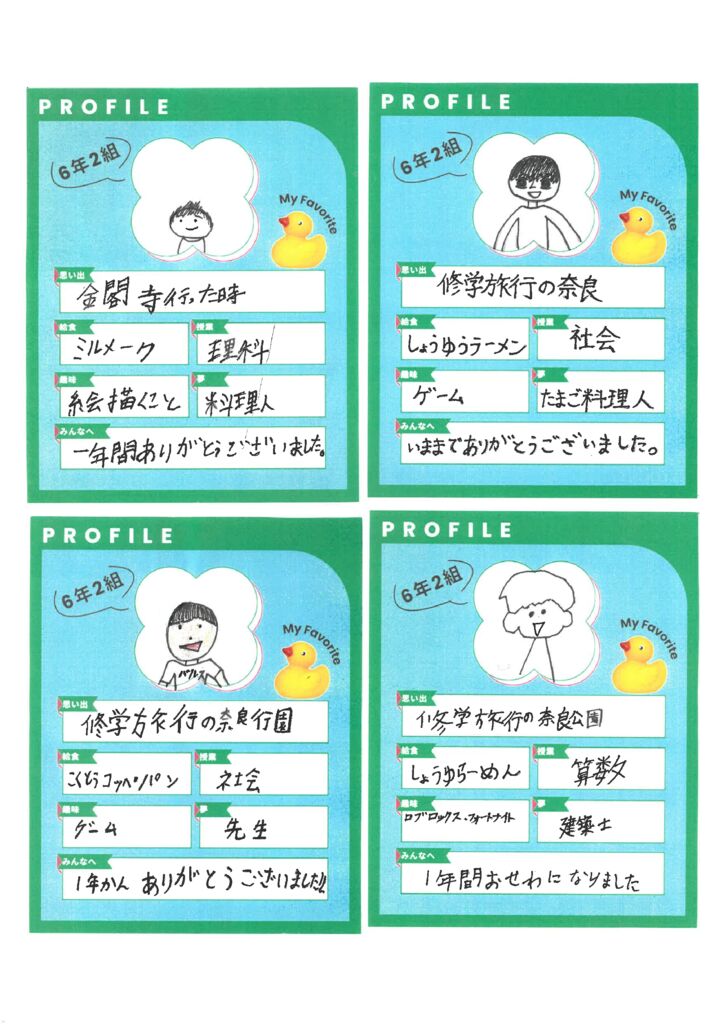 PROFILE
6年2組
My Favorite
思い出
金閣寺行った時
給食
ミルメーク
授業
理科
趣味
絵描くこと
夢
料理人
みんなへ
一年間ありがとうございました。
PROFILE
6年2組
My Favorite
思い出
修学旅行の奈良
給食
しょうゆうラーメン
授業
社会
趣味
ゲーム
夢
たまご料理人
みんなへ
いままでありがとうございました。
PROFILE
6年2組
My Favorite
思い出
修学旅行の奈良行園
給食
こくとうコッペパン
授業
社会
趣味
ゲーム
夢
先生
みんなへ
1年かんありがとうございました!!
PROFILE
6年2組
My Favorite
思い出
修学旅行の奈良公園
給食
しょうゆらーめん
授業
算数
趣味
ロブロックス、フォートナイト
夢
建築士
みんなへ
1年間おせわになりました